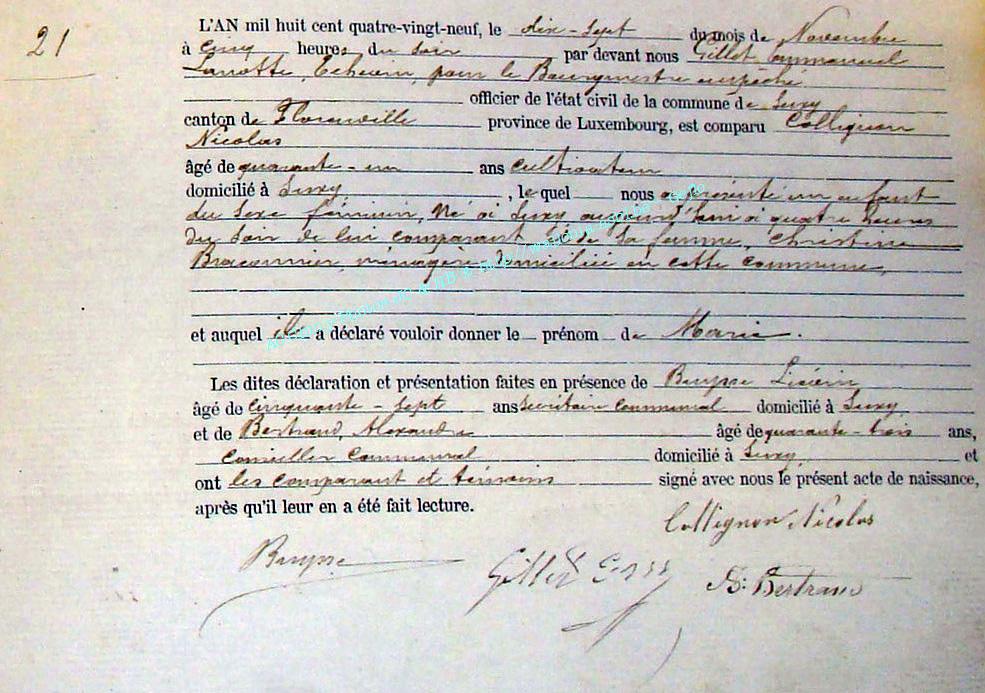 21
L'AN mil huit cent quatre-vingt-neuf, le dix-sept du mois de Novembre
à cinq heures du soir par devant nous Gillet Emmanuel
Echevin, pour le Bourgmestre empeché
officier de l'état civil de la commune de Suxy
canton de Florenville province de Luxembourg, est comparu Collignon
Nicolas
âgé de quarante-un ans cultivateur
domicilié à Suxy, lequel nous a présenté un enfant
du sexe féminin, Né à Suxy, aujourd'hui à quatre heures
du soir de lui comparant et de sa femme, Christine
Braconnier, ménagère, domiciliée en cette commune,
et auquel il a déclaré vouloir donner le prénom de Marie.
Les dites déclaration et présentation faites en présence de Buysse
âgé de cinquante-sept ans Secrétaire Communal domicilié à Suxy,
et de Bertrand, Alexandre âgé de quarante-trois ans,
conseiller communal domicilié à Suxy, et
ont les comparant et témoins signé avec nous le présent acte de naissance,
après qu'il leur en a été fait lecture.
Collignon Nicolas
Buysse Gillet A: Bertrand